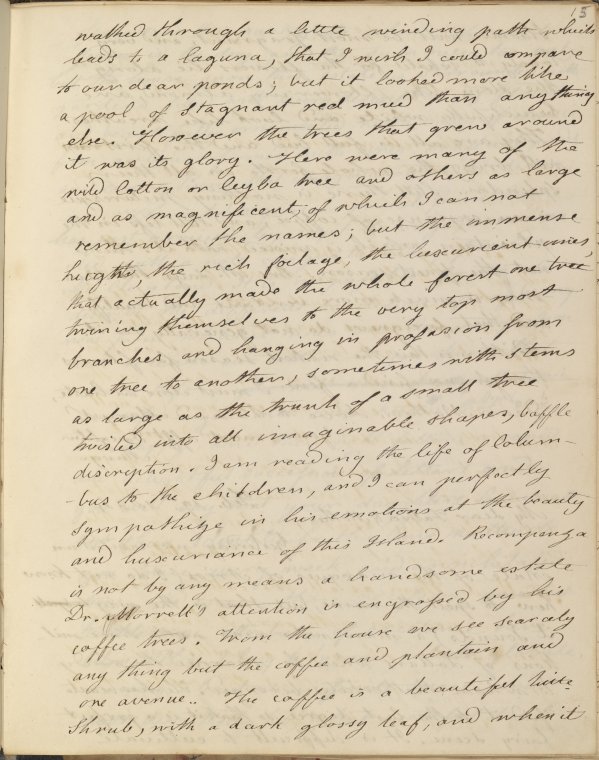 15
walked through a little winding path which
leads to a laguna, that I wish I could compare
to our dear ponds; but it looked more like
a pool of stagnant red mud than any thing
else. However the trees that grew around
it was its glory. Here were many of the
wild Cotton or Ceyba tree and others as large
and as magnificent, of which I can not
remember the names; but the immense
height, the rich foilage, the luxurient vines,
that actually made the whole forest one tree
twining themselves to the very top most
branches and hanging in profusion from
one tree to another, sometimes with stems
as large as the trunk of a small tree
twisted into all imaginable shapes, baffle
discription. I am reading the life of Colum-
-bus to the children, and I can perfectly
sympathize in his emotions at the beauty
and luxuriance of this Island. Recompenza
is not by any means a handsome estate
Dr. Morrell's attention is engrossed by his
coffee trees. From the house we see scarcely
any thing but the coffee and plantain and
one avenue.. The coffee is a beautiful little
shrub, with a dark glossy leaf, and when it